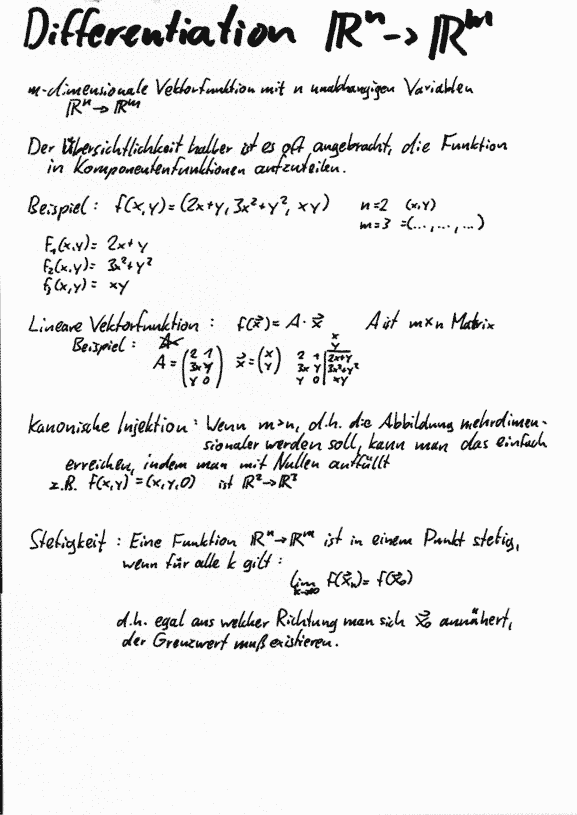 Differentiation ℝⁿ -> ℝᵐ
m-dimensionale Vektorfunktion mit n unabhängigen Variablen
ℝⁿ → ℝᵐ
Der Übersichtlichkeit halber ist es oft angebracht, die Funktion
in Komponentenfunktionen aufzuteilen.
Beispiel : f(x,y) = (2x+y, 3x²+y², xy) n=2 (x,y)
m=3 =(..., ..., ...)
f₁(x,y) = 2x+y
f₂(x,y) = 3x²+y²
f₃(x,y) = xy
Lineare Vektorfunktion : f(x⃗) = A · x⃗ A ist m×n Matrix
Beispiel :
x
y
A = (2 1 x⃗ = (x 2 1 2x+y
3x y y) 3x y 3x²+y²
y 0) y 0 xy
Kanonische Injektion : Wenn m>n, d.h. die Abbildung mehrdimen-
sionaler werden soll, kann man das einfach
erreichen, indem man mit Nullen auffüllt
z.B. f(x,y) = (x,y,0) ist ℝ² → ℝ³
Stetigkeit : Eine Funktion ℝⁿ → ℝᵐ ist in einem Punkt stetig,
wenn für alle k gilt :
lim f(x⃗ₙ) = f(x⃗₀)
k→∞
d.h. egal aus welcher Richtung man sich x⃗₀ annähert,
der Grenzwert muß existieren.